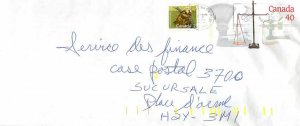 Canada
40
Service des finance
case postal 3700
SUCURSALE
Place d'arme
H2Y-3M1